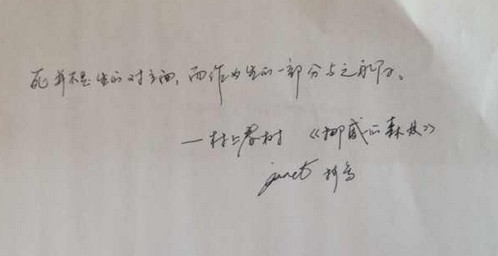 死并不是生的对立面，而作为生的一部分与之永存。
—村上春树 《挪威的森林》
janet 抄写